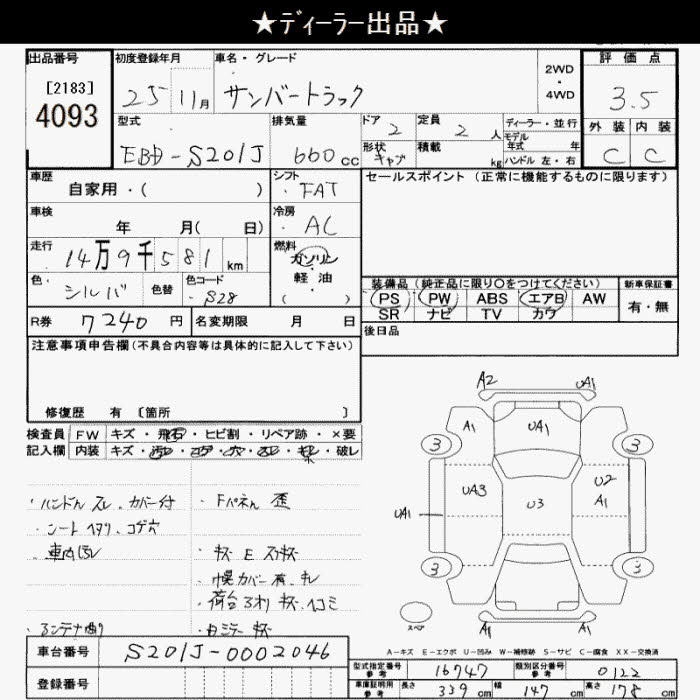 ★ディーラー出品★
出品番号
[2183]
4093
初度登録年月
25 11月
車名・グレード
サンバートラック
2WD
・
4WD
評価点
3.5
外装 内装
C C
型式
EBD-S201J
排気量
660cc
ドア 2
定員 2人
形状 キャブ
積載 kg
ディーラー・並行
モデル
年式 年
ハンドル 左・右
車歴
自家用・( )
シフト
FAT
セールスポイント (正常に機能するものに限ります)
車検
年 月( 日)
冷房
AC
走行
14万9千581km
燃料
ガソリン
・
軽油
( )
色
シルバ
色替
色コード
S28
装備品 (純正品に限り○をつけてください)
PS PW ABS エアB AW
SR ナビ TV カワ
新車保証書
有・無
R券 7240円
名変期限 月 日
後日品
注意事項申告欄(不具合内容等は具体的に記入して下さい)
修復歴 有 〔箇所 〕
検査員 FW キズ・飛石・ヒビ割・リペア跡・×要
記入欄 内装 キズ・汚レ・コゲ・穴・スレ・キレ・破レ
・ハンドル スレ、カバー付
・シート ヘタリ、コゲ穴
・車内汚レ
・Fパネル 歪
・キズ E スリキズ
・幌カバー有、キレ
・荷台3オリ キズ、ヘコミ
・アンテナ曲り
・ミラー キズ
A2 UA1
A1 UA1
3 3
UA3 U3 U2
A1
UA1
3 3
スペア
A1 A1
A-キズ E-エクボ U-凹み W-補修跡 S-サビ C-腐食 XX-交換済
車台番号 S201J-0002046
登録番号
型式指定番号
参考
16747
類別区分番号
参考
0122
車庫証明用
参考
長さ 339cm 幅 147cm 高さ 178cm